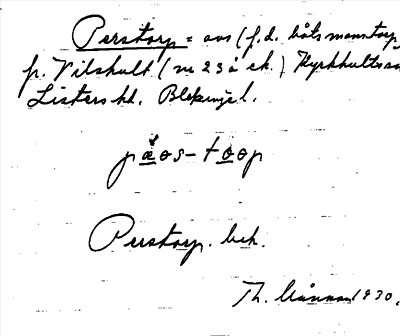 Perstorp = avs (f.d. båtsmanstorp
p. Vilshult (nr 23 å ek.) Kyrkhults sn
Listers hd. Blekinge l.
pæos-toop
Perstorp. bek.
Th. 1930.